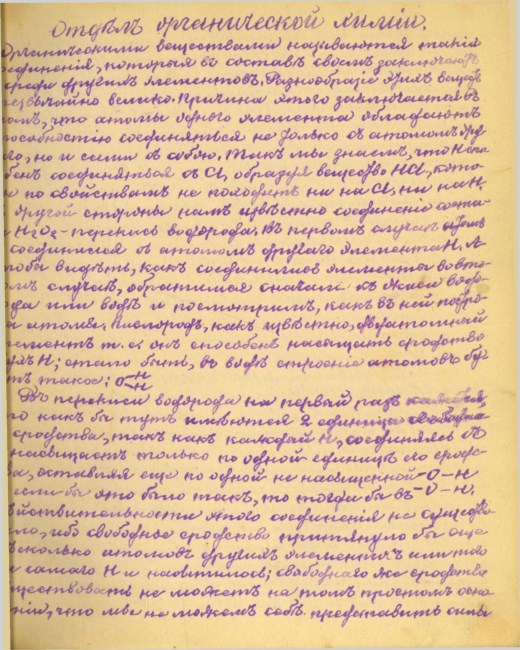 Отдѣлъ органической химіи.
Органическими веществами называются такія
соединенія, которыя въ составѣ своемъ заключаютъ
среди другихъ элементовъ. Разнообразіе этихъ веществ
чрезвычайно велико. Причина этого заключается въ
томъ, что атомы одного элемента обладаютъ
способностію соединяться не только съ атомомъ дру
го, но и сами съ собою. Такъ мы знаемъ, что H
бенъ соединяться съ Cl, образуя вещество HCl, кото
е по свойствамъ не походитъ ни на Cl, ни на H.
другой стороны намъ извѣстно соединеніе соста
H2O2 - перекись водорода. Въ первомъ случаѣ
соединился съ атомомъ другаго элемента H. А
чтобы видѣть, какъ соединились элементы во вто
омъ случаѣ, обратимся сначала къ окиси водо
ода или водѣ и посмотримъ, какъ въ ней
а атомы. Кислородъ, какъ извѣстно, двуатомный
элементъ т. к. онъ способенъ насытить сродство
ухъ H; стало быть, въ водѣ строеніе атомовъ бу
тъ такое: O-H-H
Въ перекиси водорода на первый разъ
то какъ бы тутъ имѣются 2 единицы свободна
сродства, такъ какъ каждый H, соединяясь съ
насыщаетъ только по одной единицѣ его сродс
ва, оставляя еще по одной не насыщенной -O-H
если бы это было такъ, то тогда бы въ -O-H.
ѣйствительности этого соединенія не существо
ало, ибо свободное сродство притянуло бы еще
ѣсколько атомовъ другихъ элементовъ или того
и самаго H и насытилось; свободнаго же сродства
уществовать не можетъ на томъ простомъ осно
ніи, что мы не можемъ себѣ представить силы